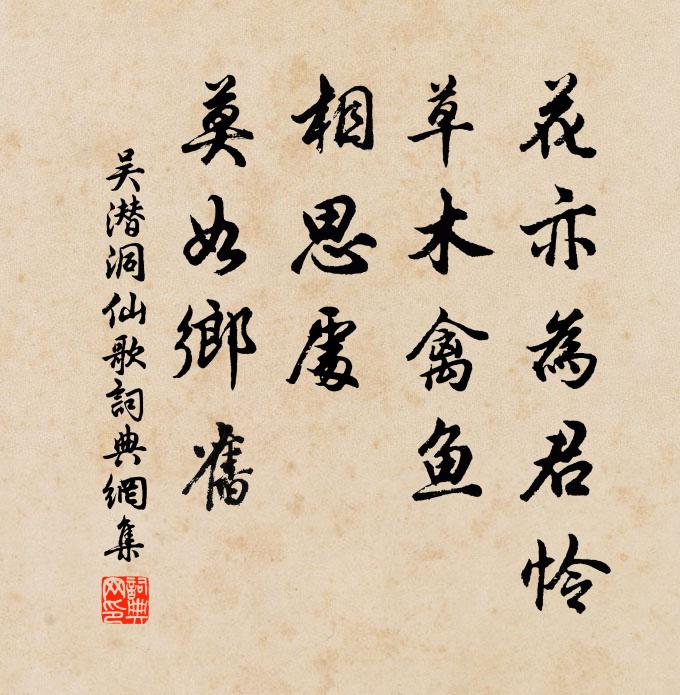 花亦為君怜
草木禽鱼
相思處
莫如鄉舊
吴潜洞仙歌詞典網集
詞典网印